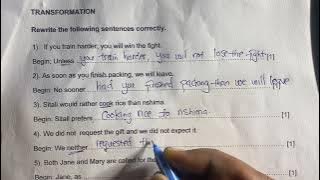 TRANSFORMATION
Rewrite the following sentences correctly.
1) If you train harder, you will win the fight.
Begin: Unless you train harder, you will not lose the fight. [1]
2) As soon as you finish packing, we will leave.
Begin: No sooner had you finished packing than we will leave
3) Sitali would rather cook rice than nshima.
Begin: Sitali prefers Cooking rice to nshima. [1]
4) We did not request the gift and we did not expect it.
Begin: We neither requested the
5) Both Jane and Mary are called for the
Begin: Jane, as